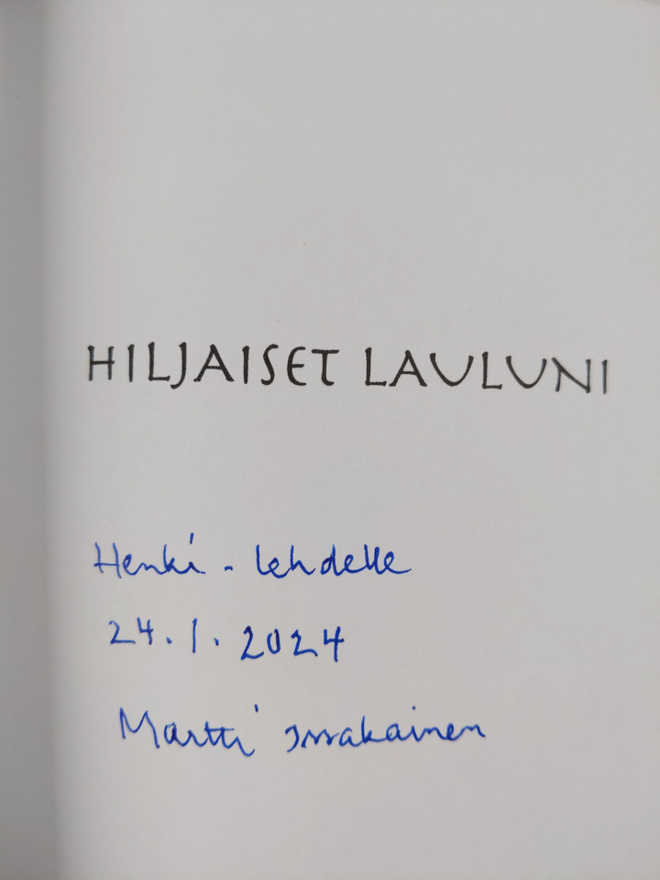 HILJAISET LAULUNI
Henki-lehdelle
24.1.2024
Martti Issakainen